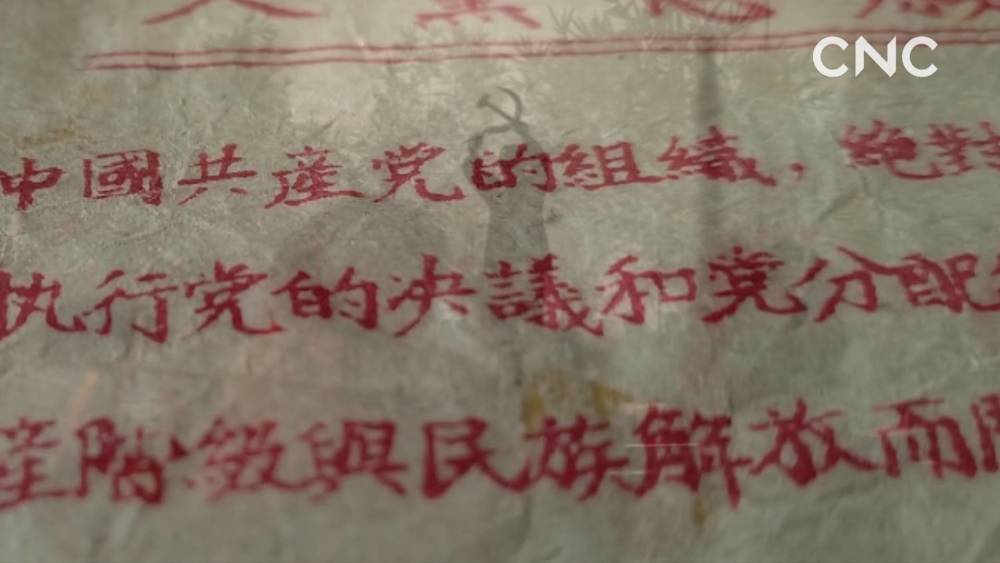 CNC
中國共產党的組織，絕對
执行党的决議和党分配
產階級與民族解放而